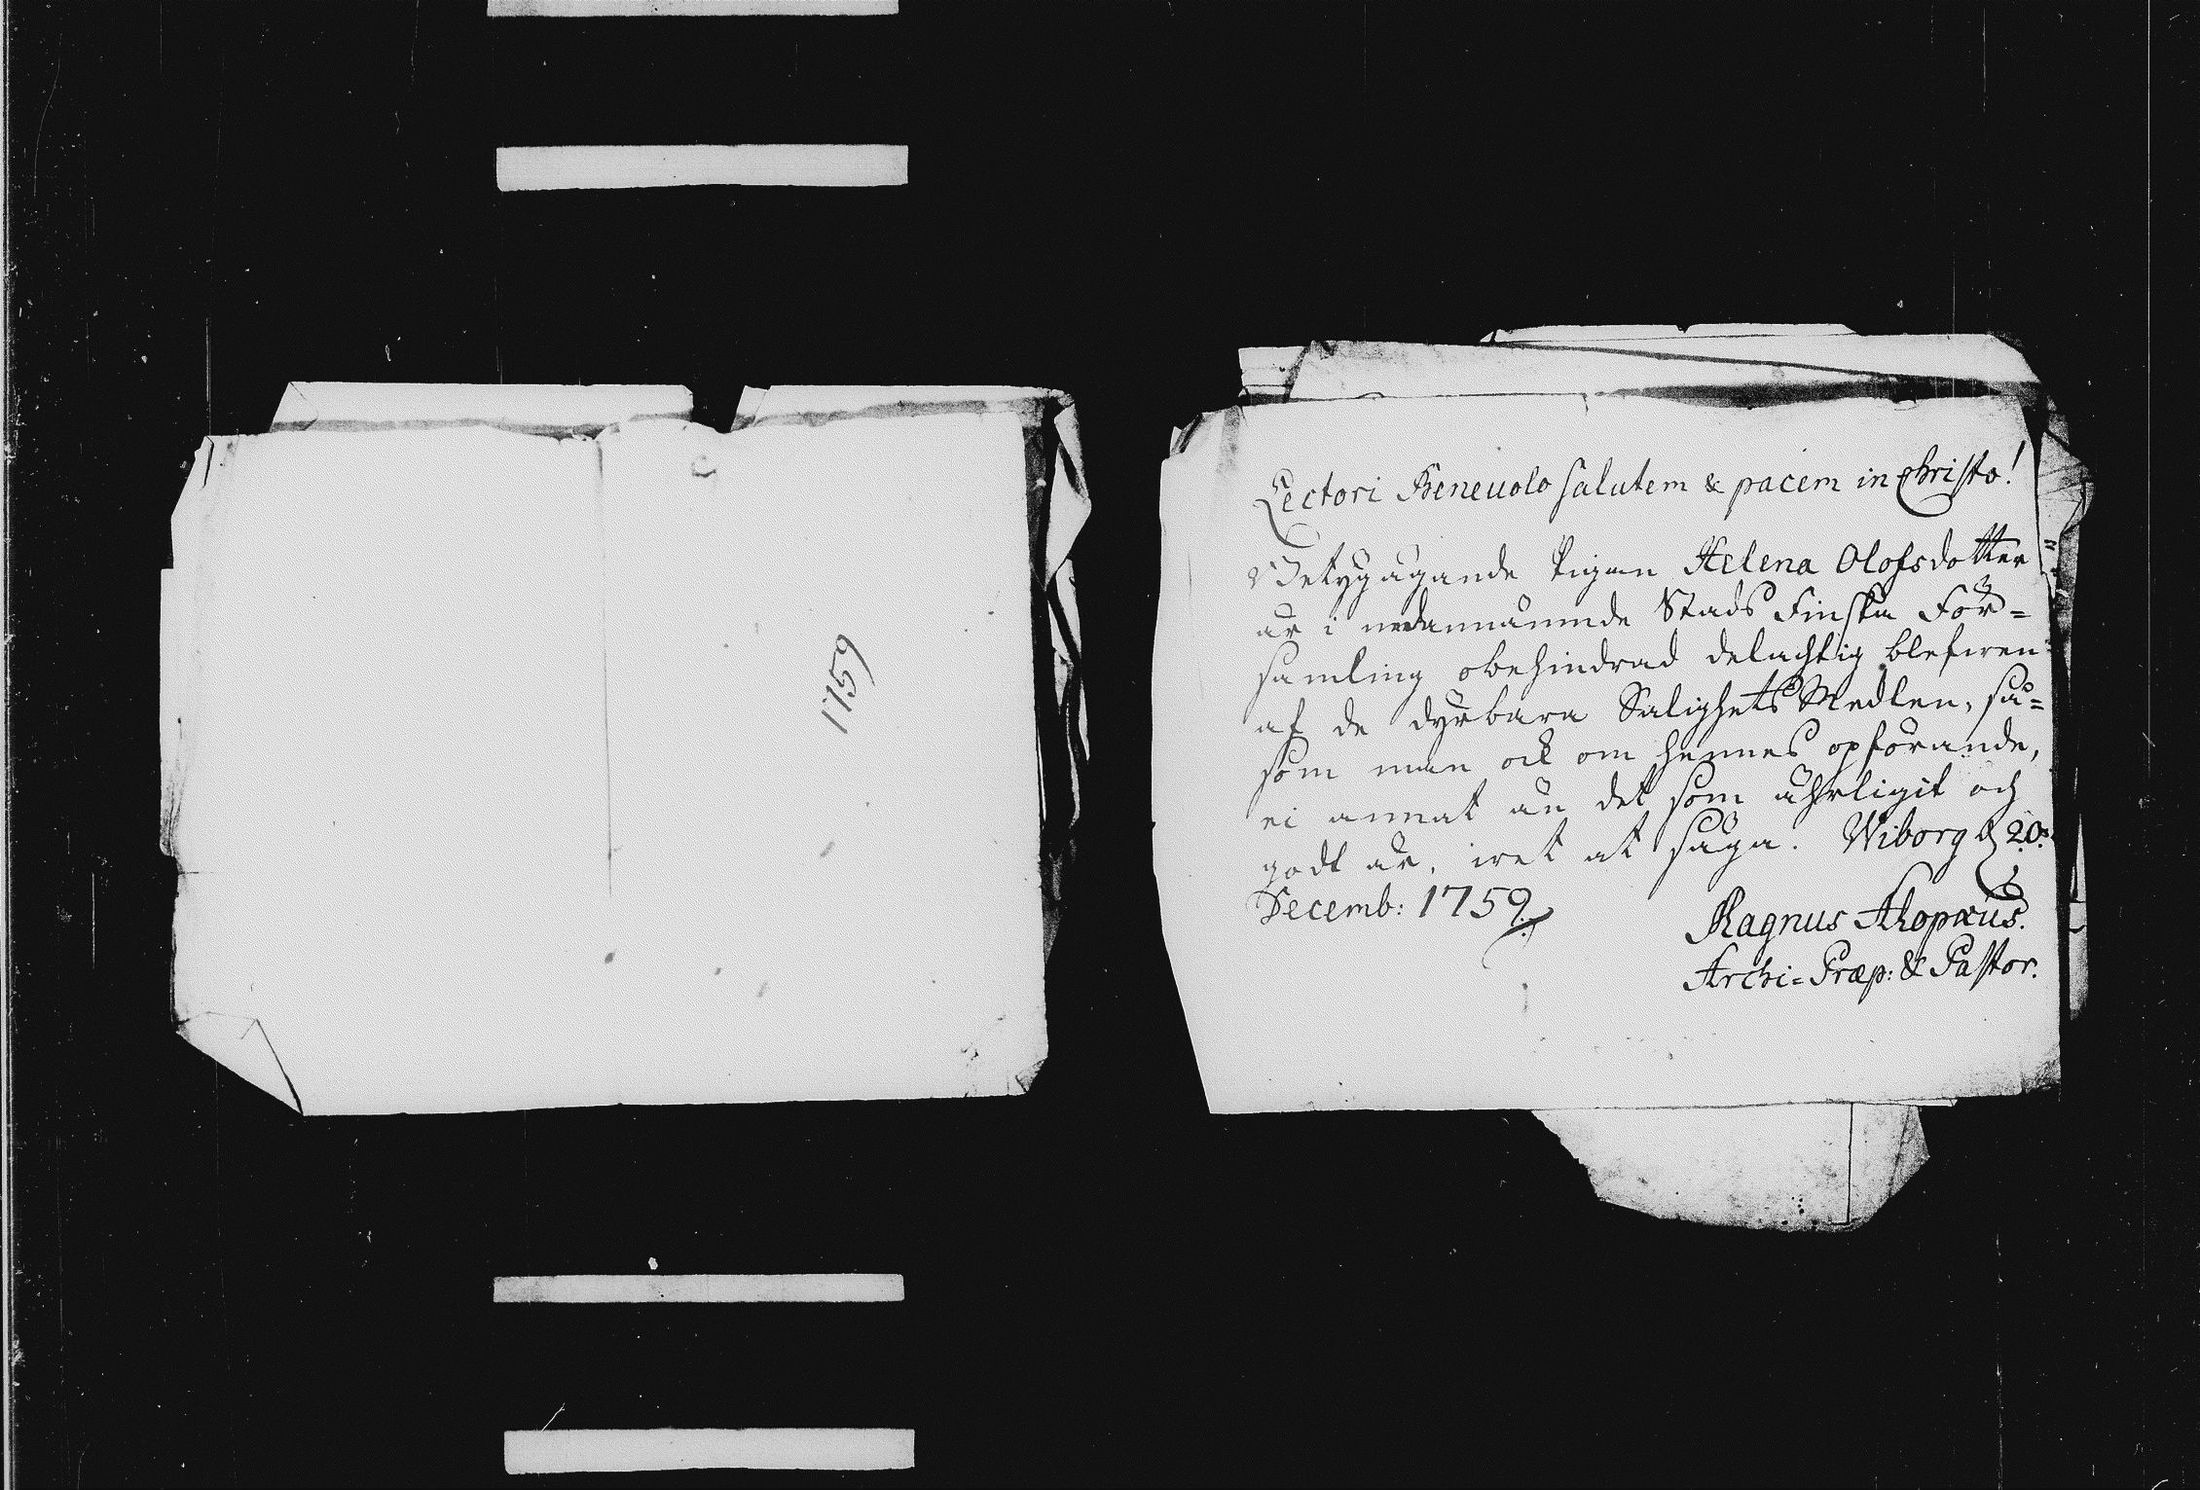 1759
Lectori Beneuolo salutem & pacem in Christo!
Betygägande Pigan Helena Olofsdotter
är i nedannämnde Stads Finska För=
samling obehindrad delachtig blefwen
af de dyrbara Salighets Medlen, så=
som man ock om hennes opförande,
ei annat än det som ährligit och
godt är, wet at säga. Wiborg d 20.
Decemb: 1759.
Magnus Alopæus.
Archi=Præp: & Pastor.